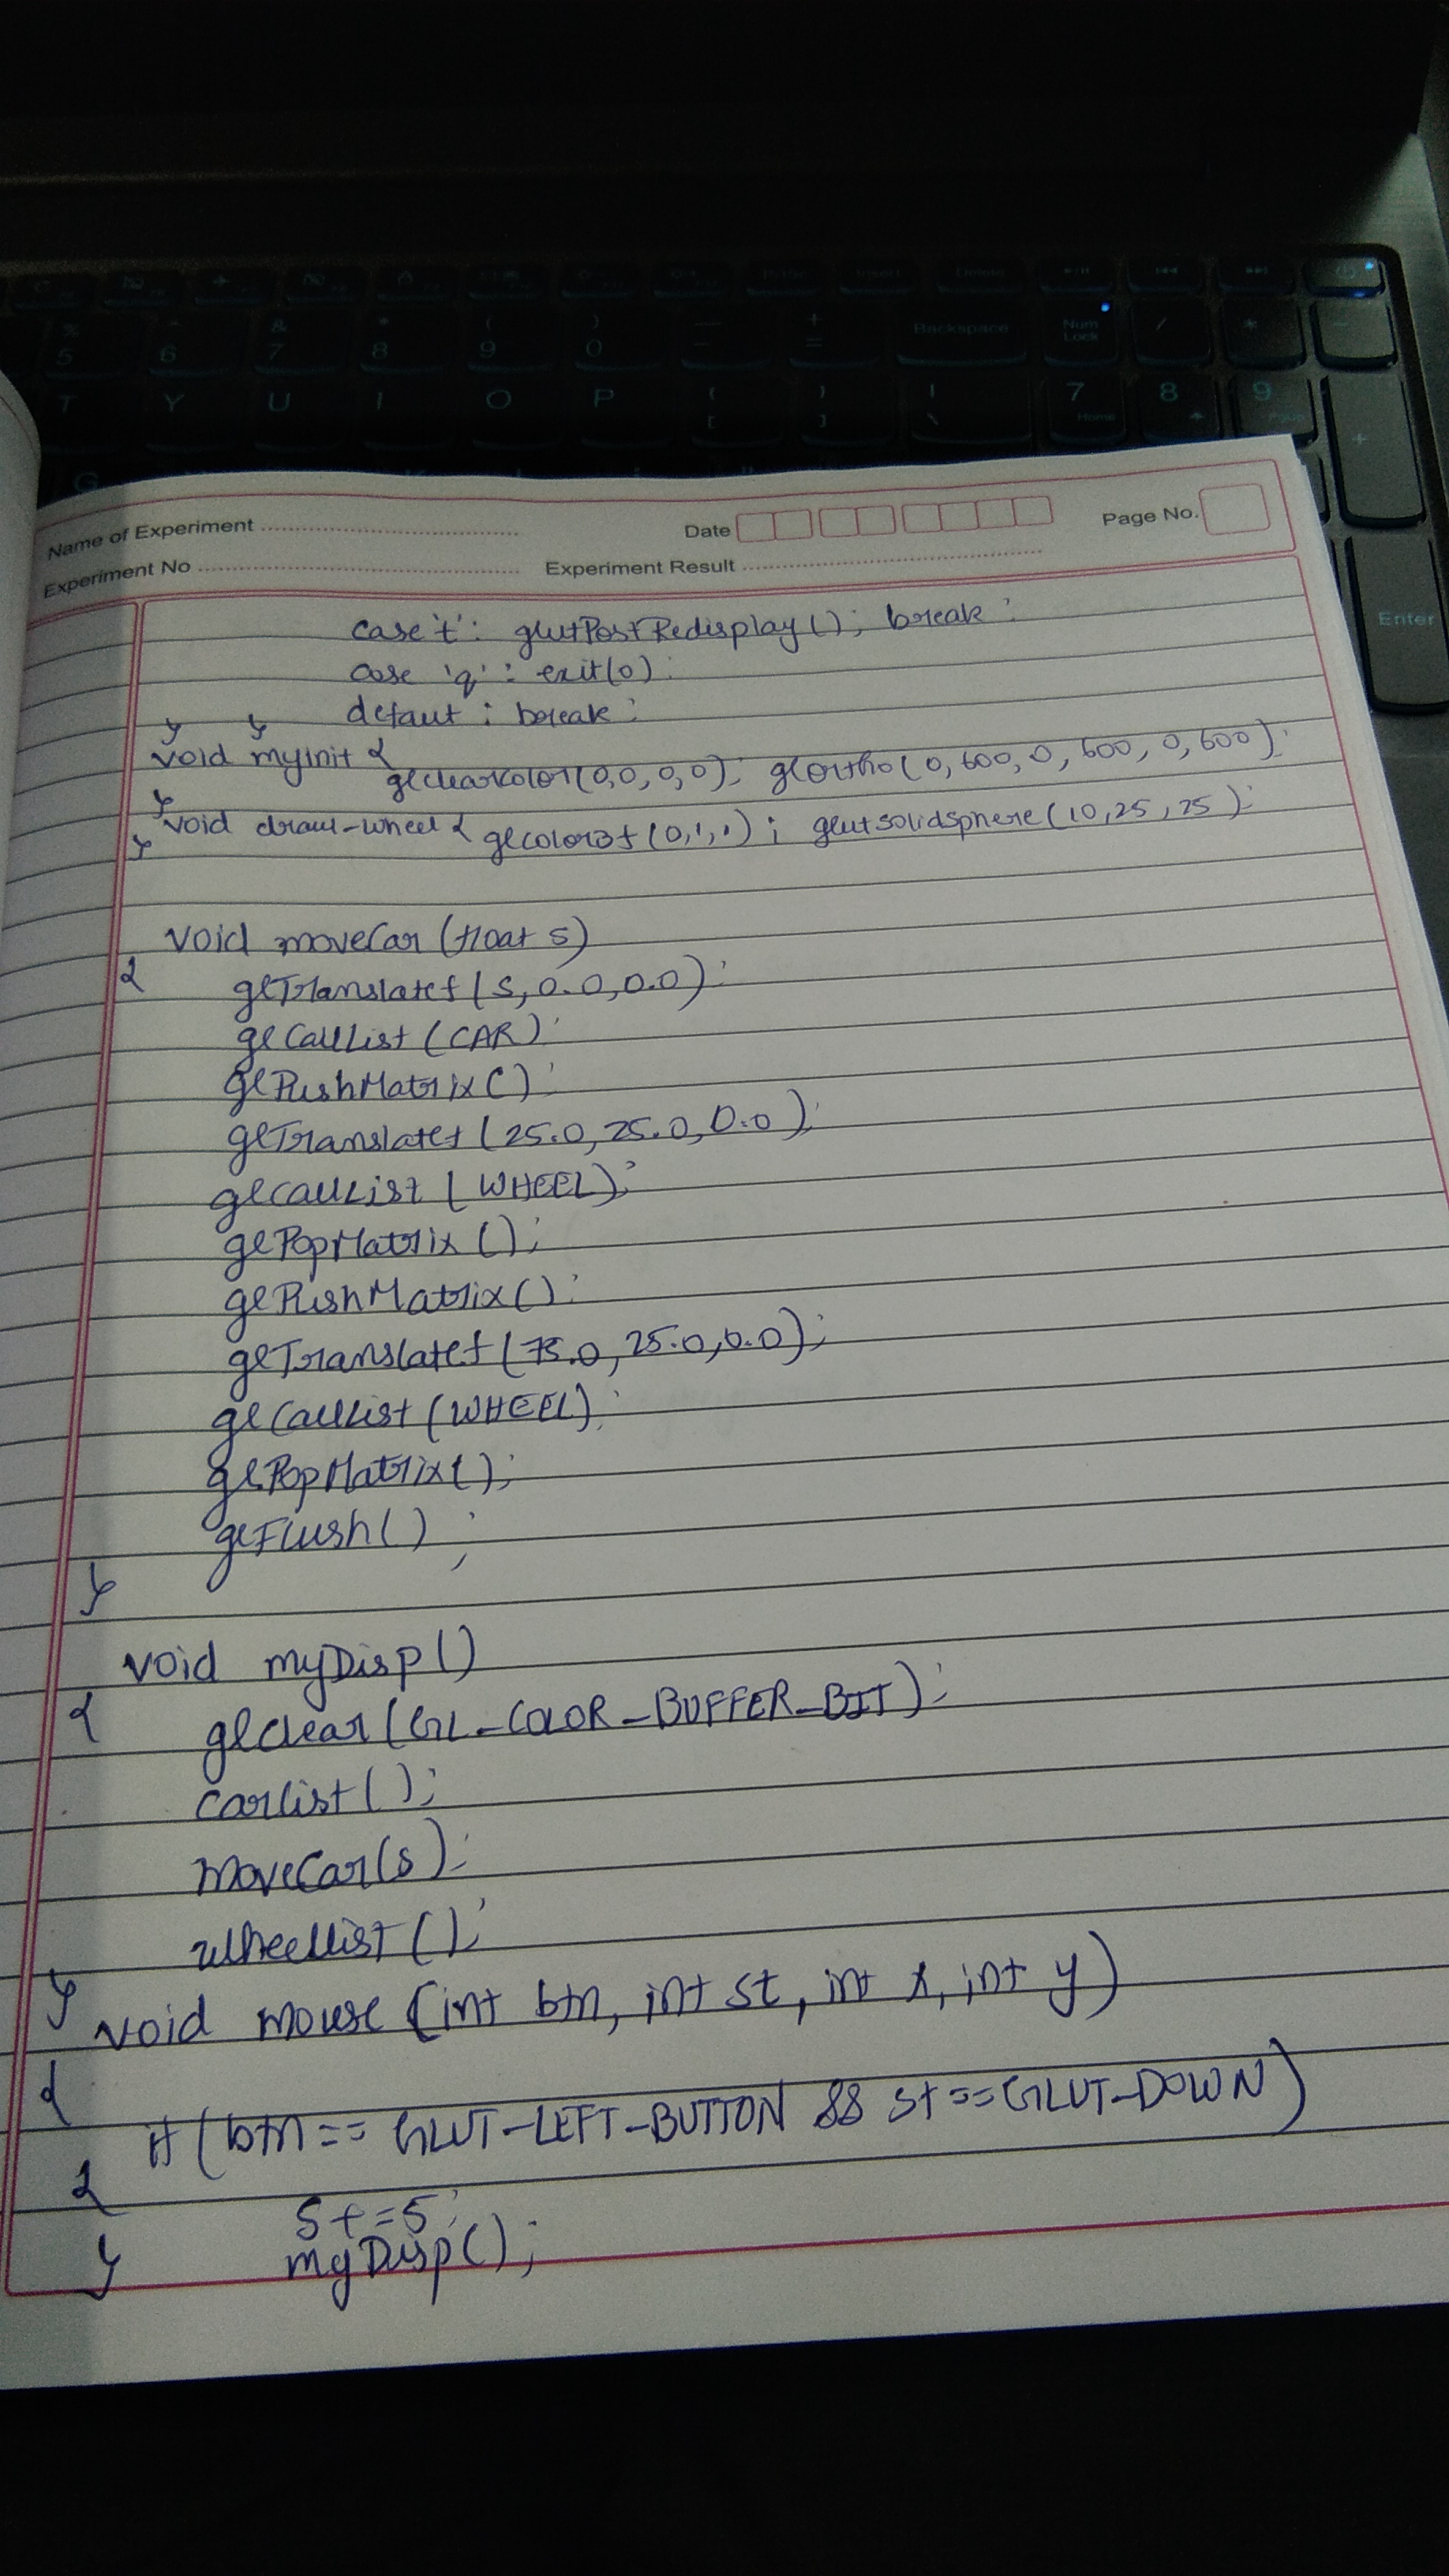 % 5
^ 6
& 7
* 8
( 9
) 0
+ =
Backspace
Num Lock
/
*
-
T Y U I O P
7 Home
8
9 PgUp
+
G
Enter
Name of Experiment Date Page No.
Experiment No Experiment Result
case 't': glutPostRedisplay(); break;
case 'q': exit(0);
defaut: break;
} }
void myinit {
glclearcolor(0,0,0,0); glortho(0,600,0,600,0,600);
}
void draw-wheel { glcolor3f(0,1,1); glutsolidsphere(10,25,25);
}
void moveCar(float s)
{
glTranslatef(s,0.0,0.0);
glCallList(CAR);
glPushMatrix();
glTranslatef(25.0,25.0,0.0);
glcallList(WHEEL);
glPopMatrix();
glPushMatrix();
glTranslatef(75.0,25.0,0.0);
glCallList(WHEEL);
glPopMatrix();
glFlush();
}
void myDisp()
{
glclear(GL_COLOR_BUFFER_BIT);
carlist();
moveCar(s);
wheellist();
}
void mouse(int btn, int st, int x, int y)
{
if(btn==GLUT_LEFT_BUTTON && st==GLUT_DOWN)
{
s+=5;
myDisp();
}